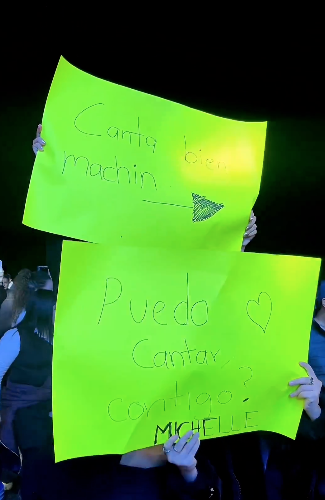 Canta bien
machin
Puedo
Cantar
contigo?
MICHELLE